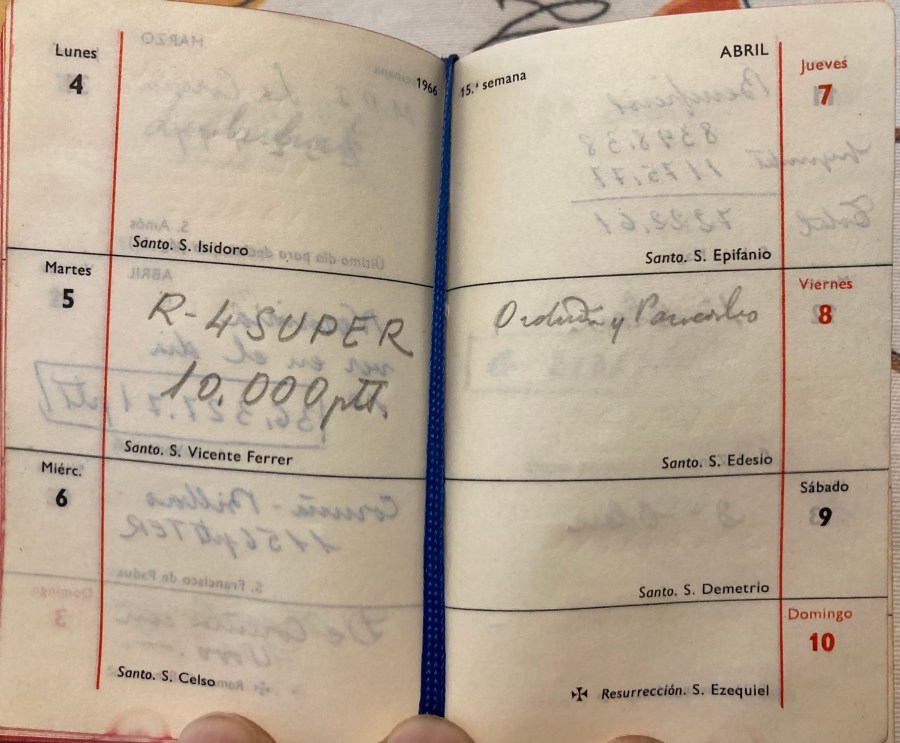 Lunes
4
1966
Santo. S. Isidoro
Martes
5
R-4 SUPER
10.000 ptt.
Santo. S. Vicente Ferrer
Miérc.
6
Santo. S. Celso
15.ª semana
ABRIL
Jueves
7
Santo. S. Epifanio
Viernes
8
Orduña y
Santo. S. Edesio
Sábado
9
Santo. S. Demetrio
Domingo
10
✠ Resurrección. S. Ezequiel